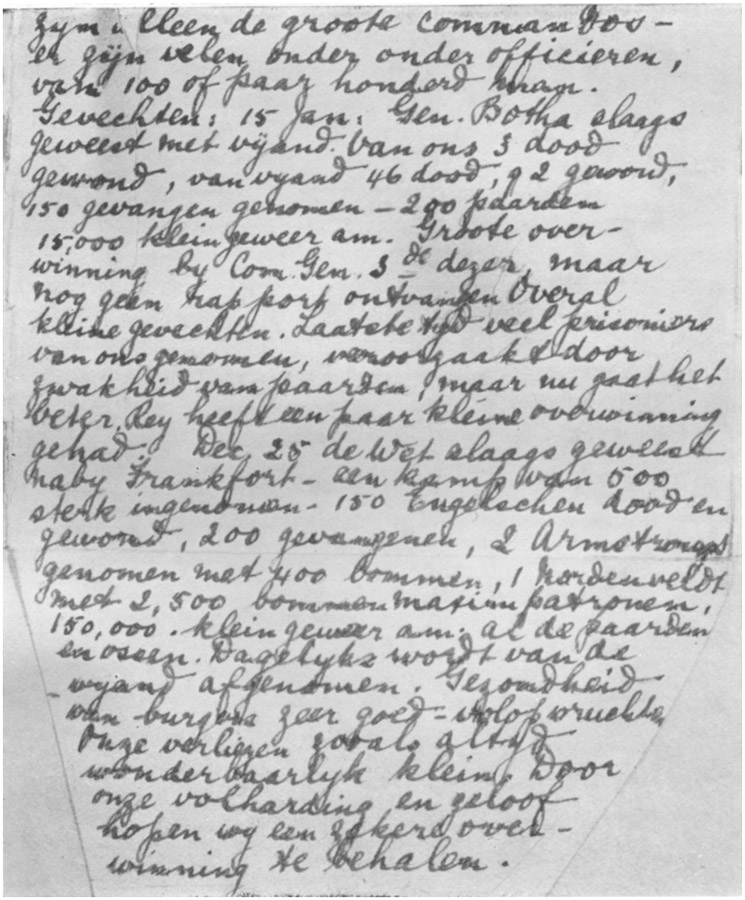 zyn alleen de groote commandos -
er zyn velen onder onder officieren,
van 100 of paar honderd man.
Gevechten: 15 Jan: Gen. Botha slaags
geweest met vyand. Van ons 3 dood
gewond, van vyand 46 dood, 92 gewond,
150 gevangen genomen - 200 paarden
15,000 klein geweer am. Groote over-
winning by Com. Gen. 3de dezer, maar
nog geen rapport ontvangen Overal
kleine gevechten. Laatste tyd veel prisoniers
van ons genomen, veroorzaakt door
zwakheid van paarden, maar nu gaat het
beter. Rey heeft een paar kleine overwinning
gehad. Dec. 25 de Wet slaags geweest
naby Frankfort - een kamp van 500
sterk ingenomen - 150 Engelschen dood en
gewond, 200 gevangenen, 2 Armstrongs
genomen met 400 bommen, 1 Nordenveldt
met 2,500 bommen maxim patronen,
150,000 . klein geweer am: al de paarden
en ossen. Dagelyks wordt van de
vyand afgenomen. Gezondheid
van burgers zeer goed - volop vruchte
Onze verliezen zooals altyd
wonderbaarlyk klein. Door
onze volharding en geloof
hopen wy een zekere over-
winning te behalen.